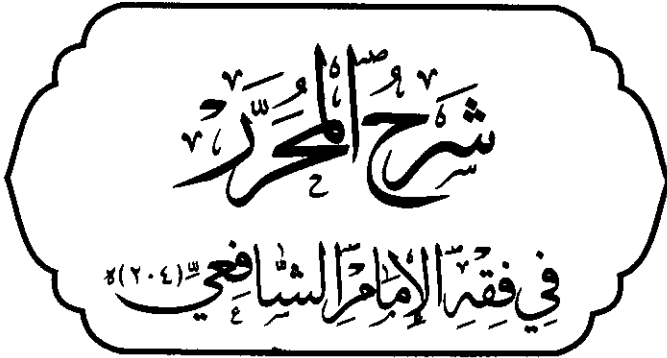 شَرْحُ الْمُحَرَّرِ
فِي فِقْهِ الْإِمَامِ الشَّافِعِيِّ (٢٠٤)ه